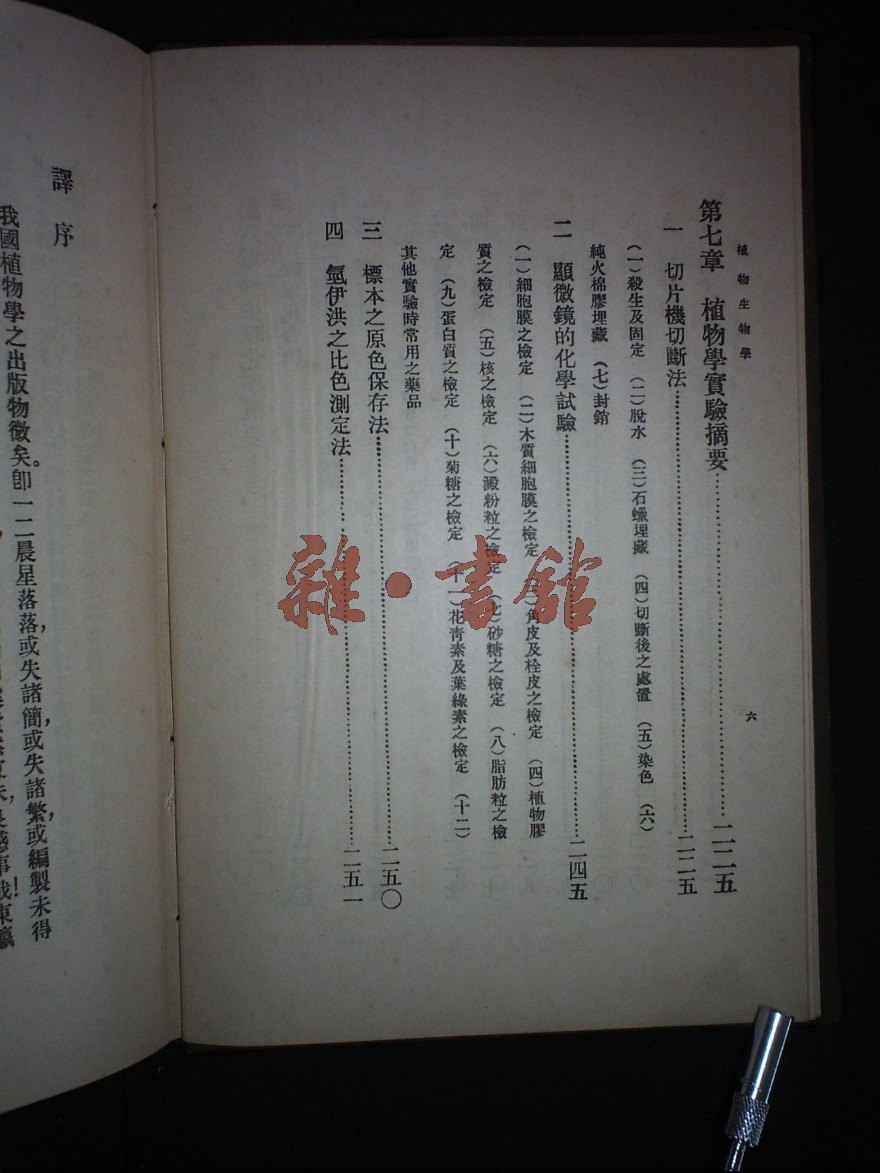 植物生物學
六
第七章　植物學實驗摘要……二二五
一　切片機切斷法……二二五
（一）殺生及固定　（二）脫水　（三）石蠟埋藏　（四）切斷後之處置　（五）染色　（六）
純火棉膠埋藏　（七）封銷
二　顯微鏡的化學試驗……二四五
（一）細胞膜之檢定　（二）木質細胞膜之檢定　（三）角皮及栓皮之檢定　（四）植物膠
質之檢定　（五）核之檢定　（六）澱粉粒之檢定　（七）砂糖之檢定　（八）脂肪粒之檢
定　（九）蛋白質之檢定　（十）菊糖之檢定　（十一）花青素及葉綠素之檢定　（十二）
其他實驗時常用之藥品
三　標本之原色保存法……二五〇
四　氫伊洪之比色測定法……二五一
譯序
我國植物學之出版物微矣。卽一二晨星落落，或失諸簡，或失諸繁，或編製未得
事哉！東瀛
雜·書館